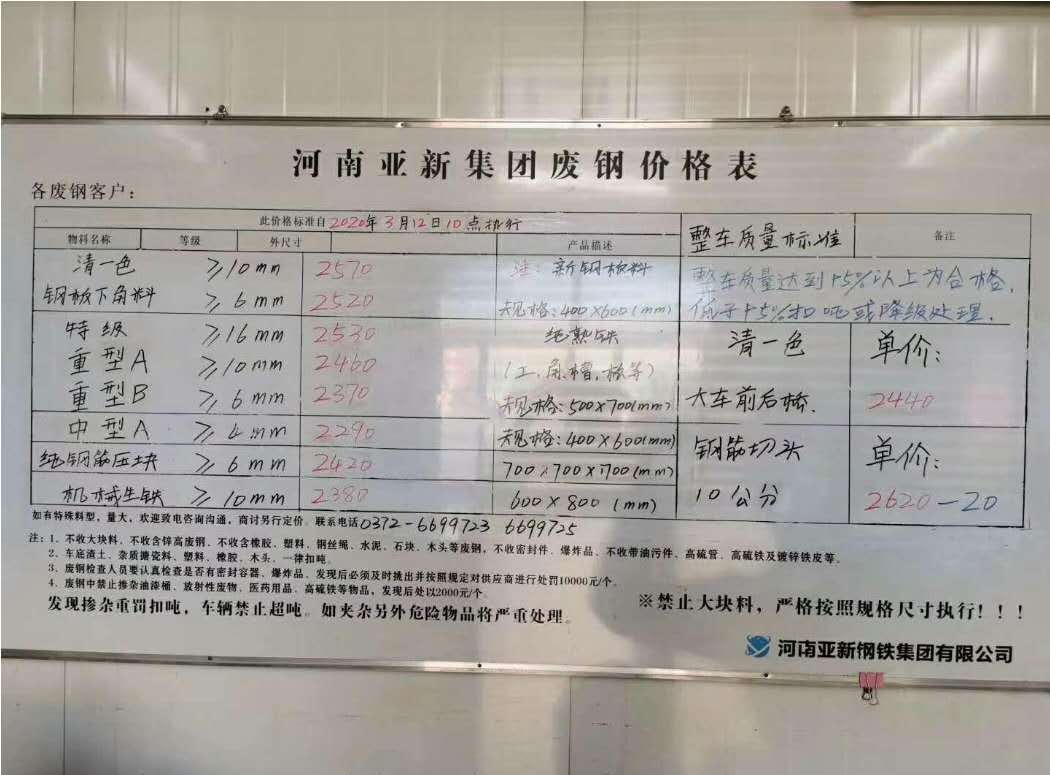 河南亚新集团废钢价格表
各废钢客户：
此价格标准自2020年3月12日10点执行
整车质量标准
备注
物料名称 等级 外尺寸 产品描述
清一色 ≥10mm 2570 注：新钢板料
整车质量达到15%以上为合格，
钢板下角料 ≥6mm 2520 规格：400×600(mm)
低于15%扣吨或降级处理。
特级 ≥16mm 2530 纯熟铁
清一色 单价：
重型A ≥10mm 2460 (工、角、槽、板等)
重型B ≥6mm 2370 规格：500×700(mm)
大车前后桥. 2440
中型A ≥4mm 2290 规格：400×600(mm)
钢筋切头 单价：
纯钢筋压块 ≥6mm 2420 700×700×700(mm)
机械生铁 ≥10mm 2380 600×800 (mm)
10公分 2620-20
如有特殊料型，量大，欢迎致电咨询沟通，商讨另行定价。联系电话0372-6699723 6699725
注：1、不收大块料、不收含锌高废钢、不收含橡胶、塑料、钢丝绳、水泥、石块、木头等废钢，不收密封件、爆炸品、不收带油污件、高硫管、高硫铁及镀锌铁皮等。
2、车底渣土、杂质搪瓷料、塑料、橡胶、木头、一律扣吨。
3、废钢检查人员要认真检查是否有密封容器、爆炸品、发现后必须及时挑出并按照规定对供应商进行处罚10000元/个。
4、废钢中禁止掺杂油漆桶、放射性废物、医药用品、高硫铁等物品，发现后处以2000元/个。
发现掺杂重罚扣吨，车辆禁止超吨。如夹杂另外危险物品将严重处理。
※禁止大块料，严格按照规格尺寸执行！！！
河南亚新钢铁集团有限公司